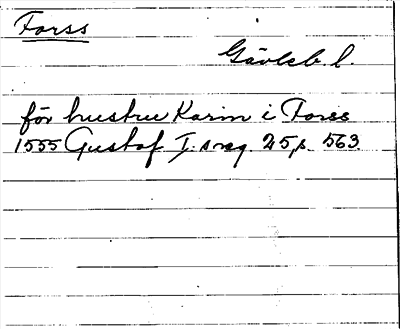 Forss
Gävleb. l.
för hustru Karin i Forss
1555 Gustaf I:s reg. 25, s. 563